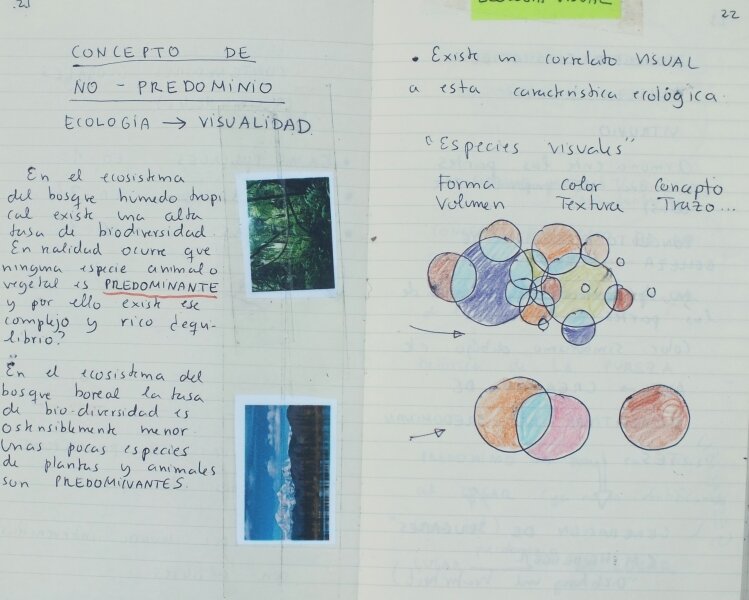 21
CONCEPTO DE
NO - PREDOMINIO
ECOLOGÍA → VISUALIDAD
En el ecosistema
del bosque húmedo tropi
cal existe una alta
tasa de biodiversidad.
En realidad ocurre que
ninguna especie animal o
vegetal es PREDOMINANTE
y por ello existe ese
complejo y rico équi-
librio?
En el ecosistema del
bosque boreal la tasa
de bio-diversidad es
ostensiblemente menor.
Unas pocas especies
de plantas y animales
son PREDOMINANTES.
ECOLOGÍA VISUAL
22
• Existe un correlato VISUAL
a esta característica ecológica.
"Especies visuales"
Forma color Concepto
Volumen Textura Trazo...